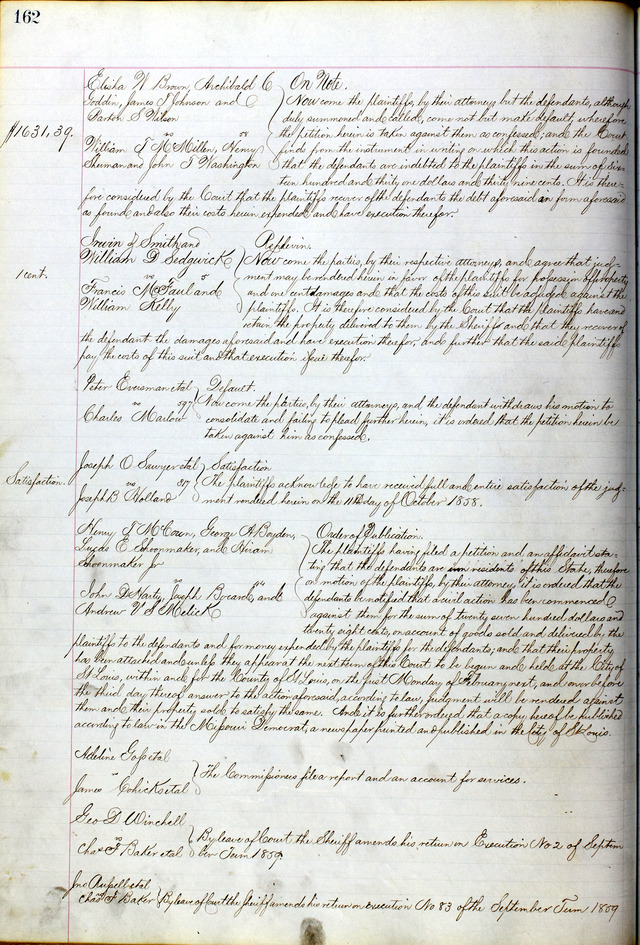 162
Elisha W Brown, Archibald C
Goddin, James S Johnson and
Parker S Wilson
$1631,39.
vs 58
William J McMillen, Henry
Sherman and John J Washington
On Note.
Now come the plaintiffs, by their attorneys but the defendants, although
duly summoned and called, come not but make default, wherefore
the petition herein is taken against them as confessed; and the Court
finds from the instrument in writing on which this action is founded
that the defendants are indebted to the plaintiffs in the sum of Six-
teen hundred and thirty one dollars and thirty nine cents. It is there-
fore considered by the Court that the plaintiffs recover of the defendants the debt aforesaid in form aforesaid
as found and also their costs herein expended and have execution therefor.
Irwin J Smith and
William D Sedgwick
1 cent.
vs 5
Francis McFaul and
William Kelly
Replevin.
Now come the parties, by their respective attorneys, and agree that judg-
ment may be rendered herein in favor of the plaintiffs for possession of property
and one cent damages and that the costs of this suit be adjudged against the
plaintiffs. It is therefore considered by the Court that the plaintiffs have and
retain the property delivered to them by the Sheriff and that they recover of
the defendant the damages aforesaid and have execution therefor, and further that the said plaintiffs
pay the costs of this suit and that execution issue therefor.
Peter Eversman et al
vs 597
Charles Marlow
Default.
Now come the parties, by their attorneys, and the defendant withdraws his motion to
consolidate and failing to plead further herein, it is ordered that the petition herein be
taken against him as confessed.
Satisfaction.
Joseph O Sawyer et al
vs 317
Joseph B Holland
Satisfaction
The plaintiffs acknowledge to have received full and entire satisfaction of the judg-
ment rendered herein on the 11th day of October 1858.
Henry J McCown, George A Boyden,
Lucius E Shoonmaker, and Hiram
Shoonmaker Jr
vs
John D Harty, Joseph Brocard, and
Andrew V S Melick
Order of Publication.
The plaintiffs having filed a petition and an affidavit sta-
ting that the defendants are non residents of this State, therefore
on motion of the plaintiffs, by their attorney, it is ordered that the
defendants be notified that a civil action has been commenced
against them for the sum of twenty seven hundred dollars and
twenty eight cents, on account of goods sold and delivered by the
plaintiffs to the defendants and for money expended by the plaintiffs for the defendants, and that their property
has been attached and unless they appear at the next term of this Court to be begun and held at the City of
St Louis, within and for the County of St Louis, on the first Monday of February next, and on or before
the third day thereof answer to the action aforesaid, according to law, judgment will be rendered against
them and their property sold to satisfy the same. And it is further ordered that a copy hereof be published
according to law in the Missouri Democrat, a newspaper printed and published in the City of St Louis.
Adeline Goss et al
vs
James Cohick et al
The Commissioners file a report and an account for services.
Geo D Winchell
vs
Chas F Baker et al
By leave of Court the Sheriff amends his return on Execution No 2 of Septem
ber Term 1859
Jno Russell et al
vs
Chas F Baker
By leave of Court the Sheriff amends his return on execution No 83 of the September Term 1859